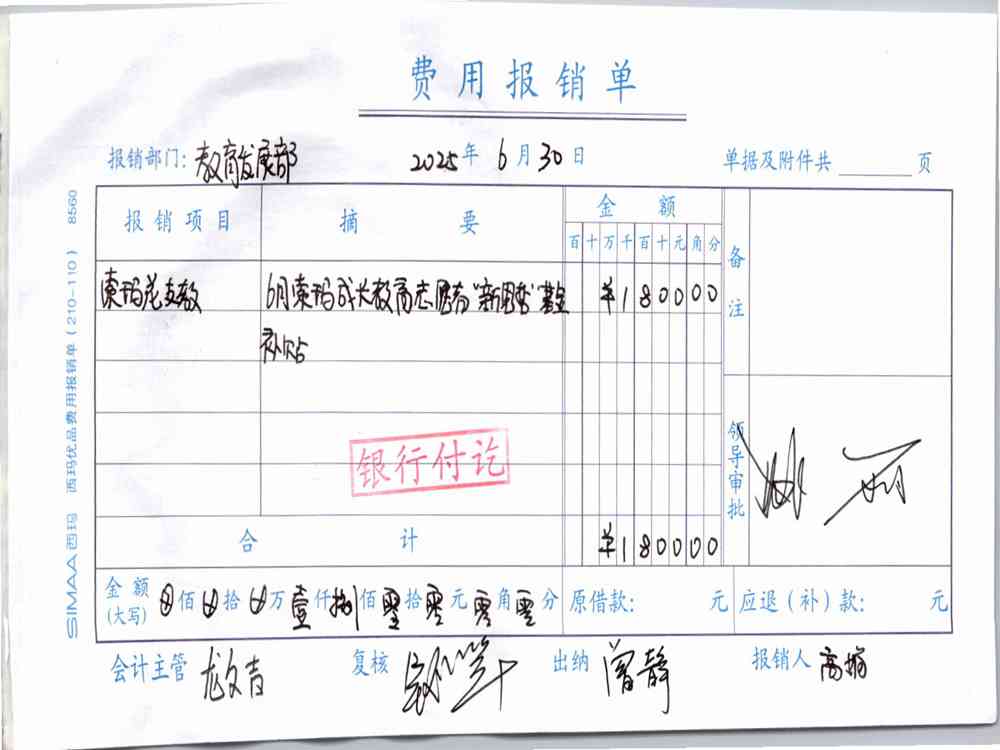 费用报销单
报销部门: 教育发展部 2025年 6月30日 单据及附件共 页
报销项目 摘要 金额 备注
百十万千百十元角分
索玛花支教 6月索玛成长教育志愿者"新愿者"基金 ¥180000
补贴
银行付讫
领导审批
合计 ¥180000
金额(大写) 佰 拾 万 壹仟捌佰零拾零元零角零分 原借款: 元 应退(补)款: 元
会计主管 龙文青 复核 出纳 曾静 报销人 高娟
SIMAA西玛 西玛优品费用报销单(210-110) 8560